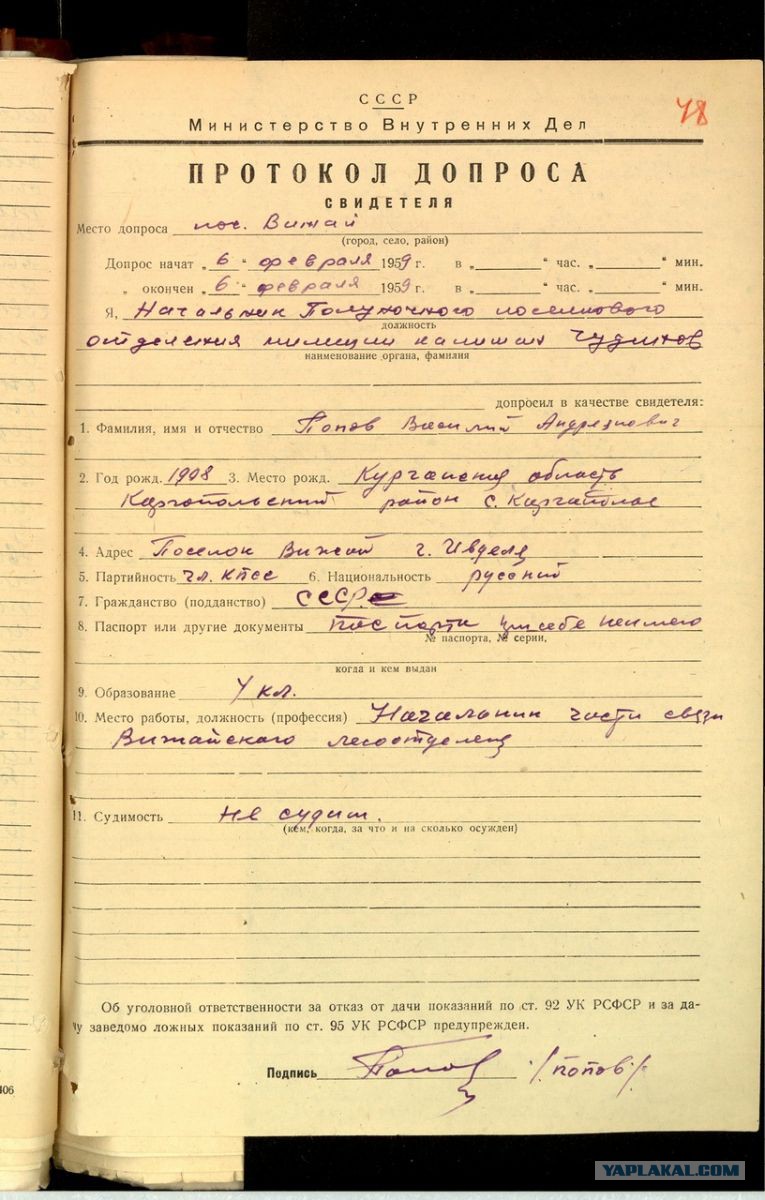 48
СССР
Министерство Внутренних Дел
ПРОТОКОЛ ДОПРОСА
СВИДЕТЕЛЯ
Место допроса пос. Вижай
(город, село, район)
Допрос начат „ 6 “ февраля 1959 г. в „ “ час. „ “ мин.
„ окончен „ 6 “ февраля 1959 г. в „ “ час. „ “ мин.
Я, Начальник Полуночного поселкового
должность
отделения милиции капитан Чудинов
наименование органа, фамилия
допросил в качестве свидетеля:
1. Фамилия, имя и отчество Попов Василий Андреянович
2. Год рожд. 1908 3. Место рожд. Курганская область
Каргопольский район с.
4. Адрес Поселок Вижай г. Ивделя
5. Партийность чл. КПСС 6. Национальность русский
7. Гражданство (подданство) СССР
8. Паспорт или другие документы паспорта при себе неимею
№ паспорта, № серии,
когда и кем выдан
9. Образование 4 кл.
10. Место работы, должность (профессия) Начальник части связи
Вижайского
11. Судимость Не судим.
(кем, когда, за что и на сколько осужден)
Об уголовной ответственности за отказ от дачи показаний по ст. 92 УК РСФСР и за да-
чу заведомо ложных показаний по ст. 95 УК РСФСР предупрежден.
Подпись Попов /попов/
406
YAPLAKAL.COM